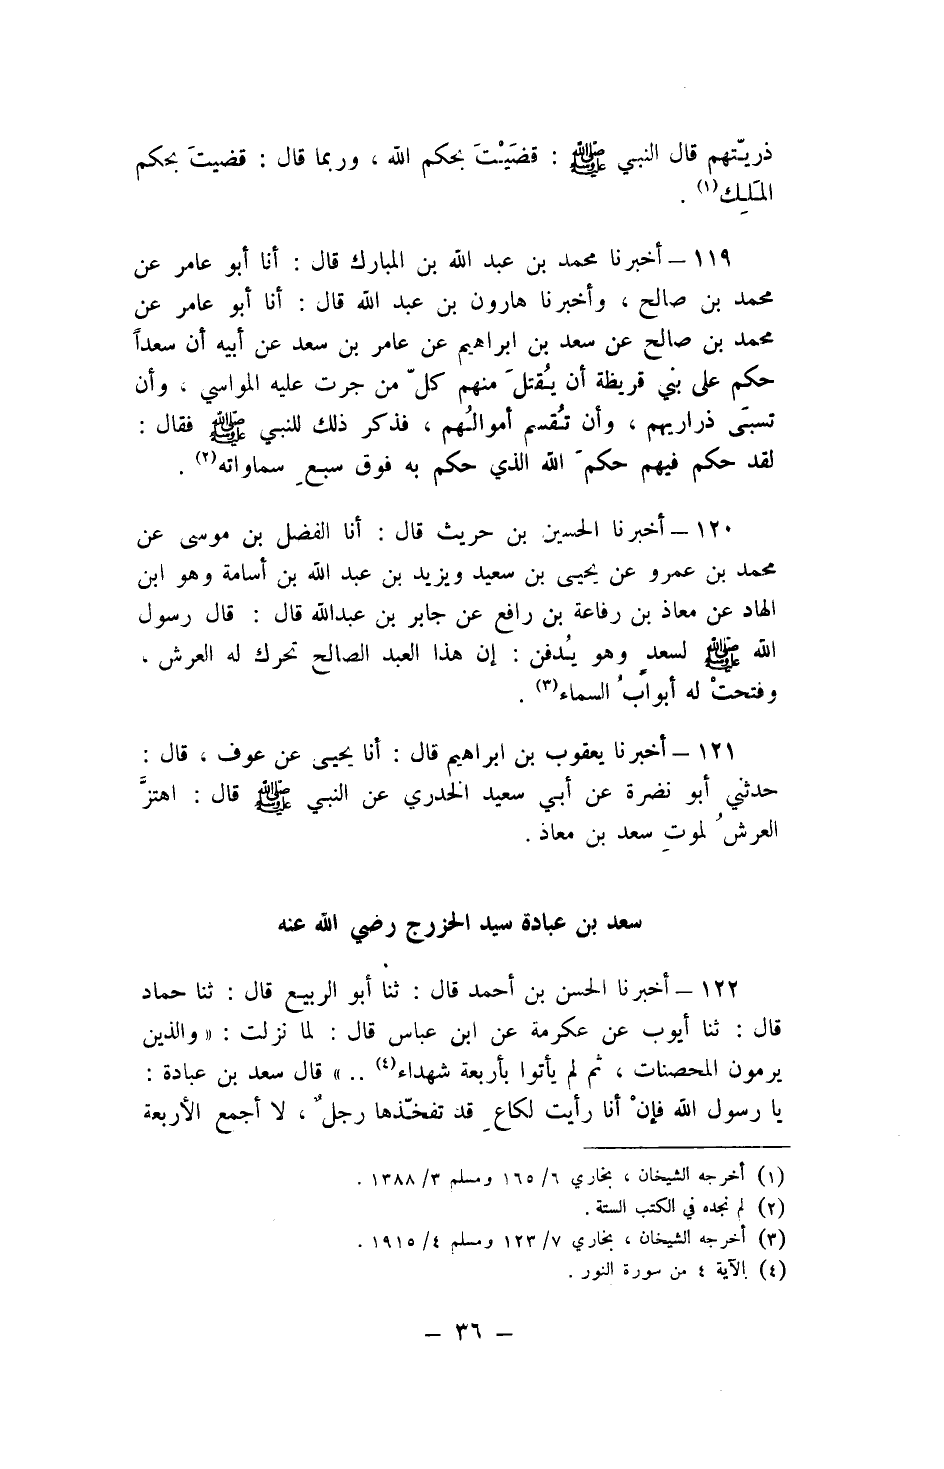 ذريّتهم قال النبي ﷺ : قضَيْتَ بحكم الله ، وربما قال : قضيتَ بحكم
المَلِك(١) .
١١٩ – أخبرنا محمد بن عبد الله بن المبارك قال : أنا أبو عامر عن
محمد بن صالح ، وأخبرنا هارون بن عبد الله قال : أنا أبو عامر عن
محمد بن صالح عن سعد بن ابراهيم عن عامر بن سعد عن أبيه أن سعداً
حكم على بني قريظة أن يُقتلَ منهم كلّ من جرت عليه المواسي ، وأن
تسبَى ذراريهم ، وأن تُقسم أموالُهم ، فذكر ذلك للنبي ﷺ فقال :
لقد حكم فيهم حكمَ الله الذي حكم به فوق سبعِ سماواته(٢) .
١٢٠ – أخبرنا الحسين بن حريث قال : أنا الفضل بن موسى عن
محمد بن عمرو عن يحيى بن سعيد ويزيد بن عبد الله بن أسامة وهو ابن
الهاد عن معاذ بن رفاعة بن رافع عن جابر بن عبدالله قال : قال رسول
الله ﷺ لسعدٍ وهو يُدفن : إن هذا العبد الصالح تحرك له العرش ،
وفتحتْ له أبوابُ السماء(٣) .
١٢١ – أخبرنا يعقوب بن ابراهيم قال : أنا يحيى عن عوف ، قال :
حدثني أبو نضرة عن أبي سعيد الخدري عن النبي ﷺ قال : اهتزَّ
العرشُ لموتِ سعد بن معاذ .
سعد بن عبادة سيد الخزرج رضي الله عنه
١٢٢ – أخبرنا الحسن بن أحمد قال : ثنا أبو الربيع قال : ثنا حماد
قال : ثنا أيوب عن عكرمة عن ابن عباس قال : لما نزلت : « والذين
يرمون المحصنات ، ثم لم يأتوا بأربعة شهداء(٤) .. » قال سعد بن عبادة :
يا رسول الله فإنْ أنا رأيت لكاعِ قد تفخّذها رجلٌ ، لا أجمع الأربعة
(١) أخرجه الشيخان ، بخاري ٦/ ١٦٥ ومسلم ٣/ ١٣٨٨ .
(٢) لم نجده في الكتب الستة .
(٣) أخرجه الشيخان ، بخاري ٧/ ١٢٣ ومسلم ٤/ ١٩١٥ .
(٤) الآية ٤ من سورة النور .
– ٣٦ –